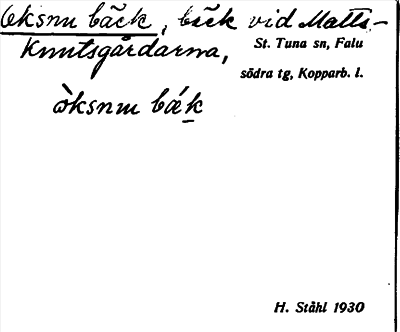 Oksnu bäck, bäck vid Matts-
Knutsgårdarna,
St. Tuna sn, Falu
södra tg, Kopparb. l.
òksnu bǽk
H. Ståhl 1930